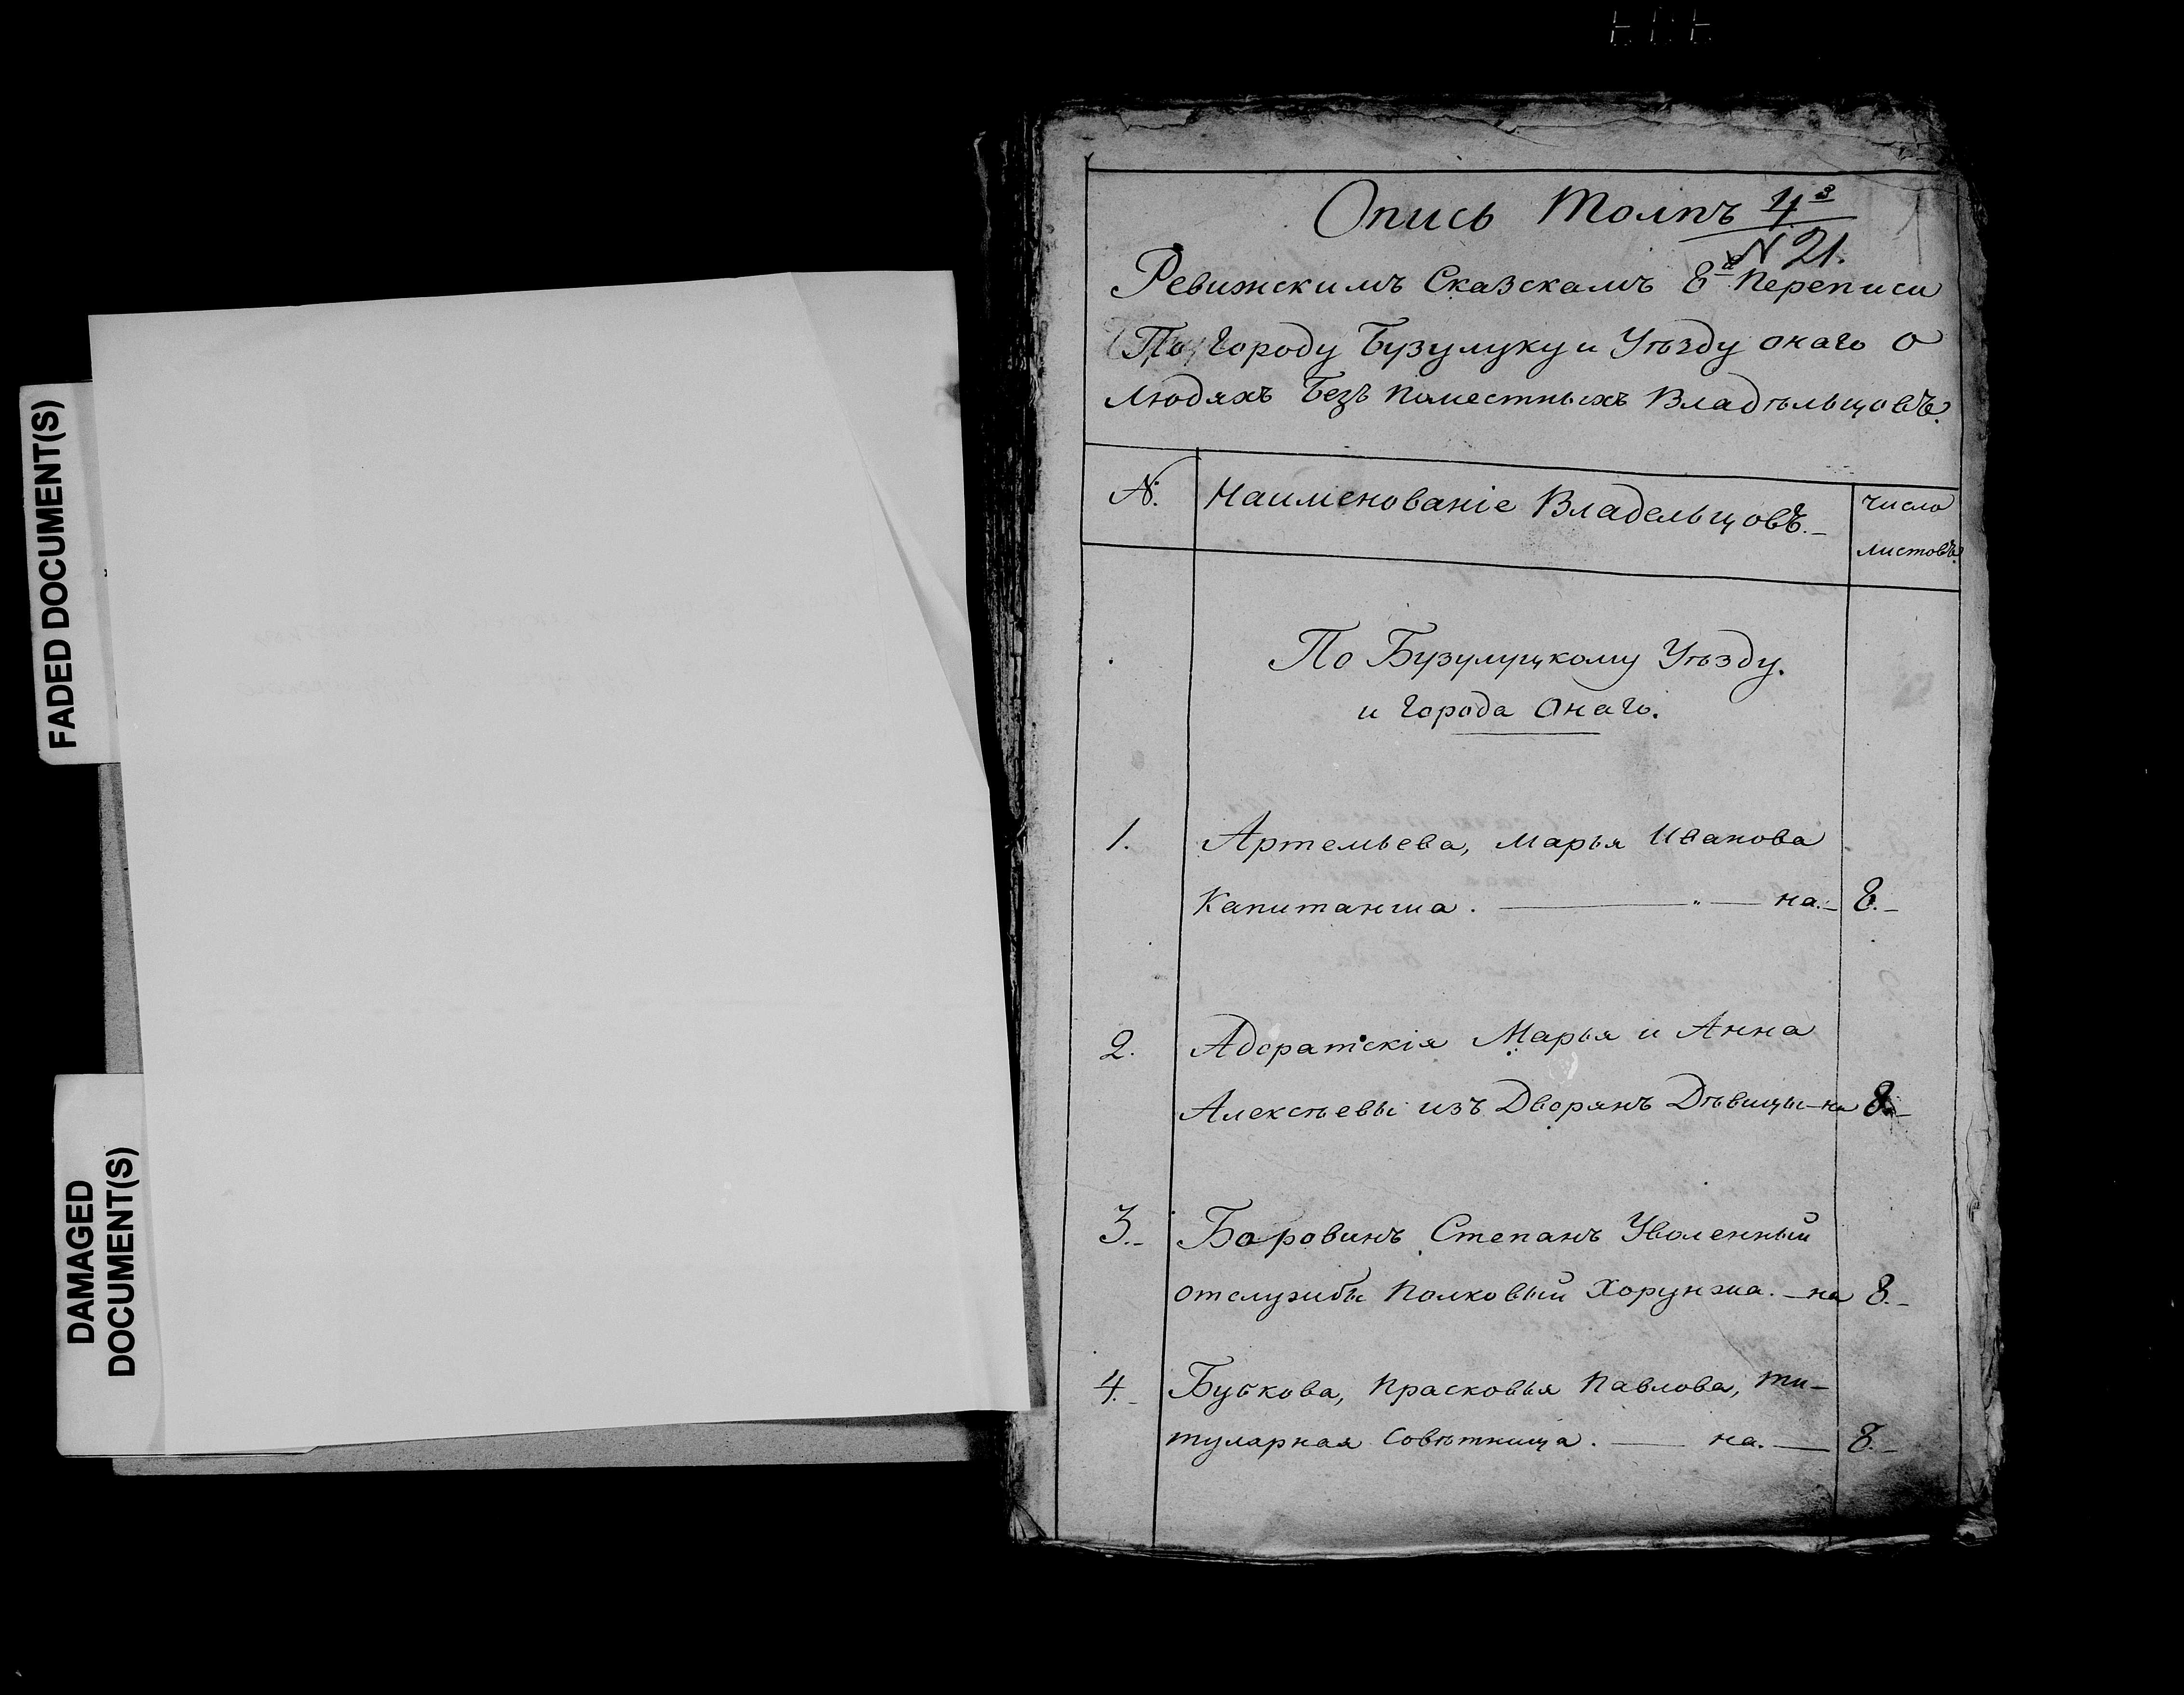 FADED DOCUMENT(S)
DAMAGED
DOCUMENT(S)
Опись Томпъ 4 3
N 21.
Ревижскимъ Сказскамъ 8й Переписи
По Городу Бузулуку и Уѣзду онаго о
людяхъ Безъ Поместныхъ Владѣльцовъ.
N. Наименованіе Владельцовъ. число
листовъ.
По Бузулуцкому Уѣзду.
и города Онаго.
1. Артемьева, Марья Иванова
Капитанша. — на. 8.
2. Адоратскія Марья и Анна
Алексѣевы изъ Дворянъ Дѣвицы на 8.
3. Боровинъ Степанъ Уволенный
отслужбы Полковый Хорунжа. на 8.
4. Бубкова, Прасковья Павлова, ти-
тулярная Совѣтница. — на. — 8.